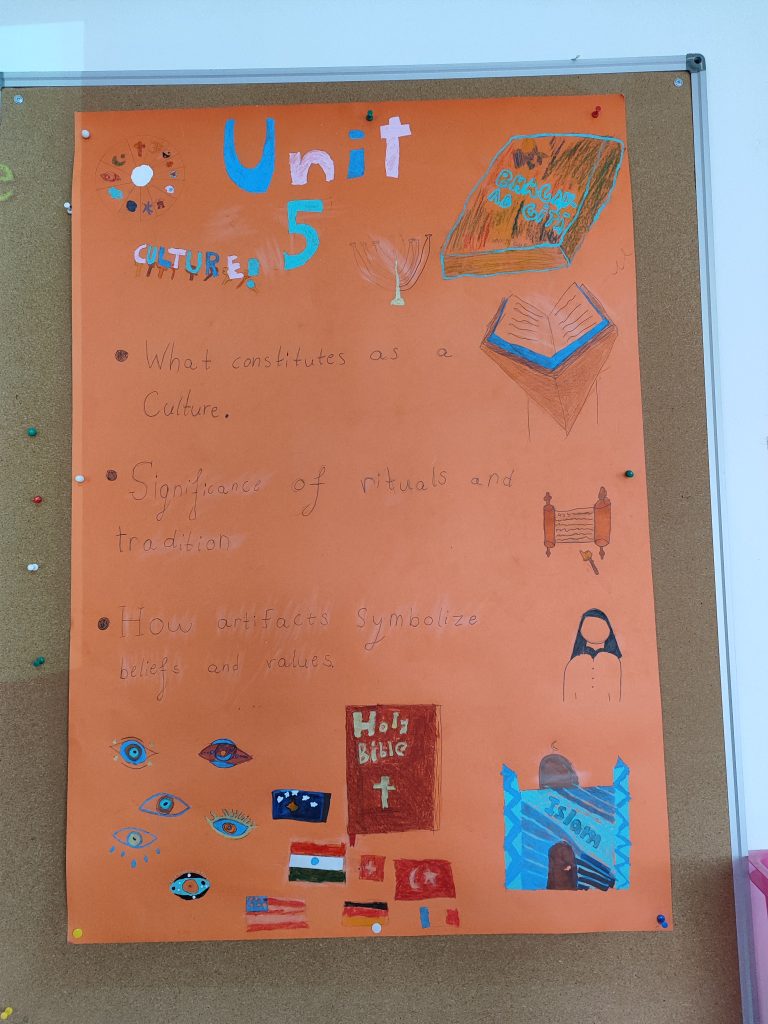 Unit
5
CULTURE!
BHAGAV
AD GITA
• What constitutes as a
Culture.
• Significance of rituals and
tradition
• How artifacts symbolize
beliefs and values.
Holy
Bible
Islam
e